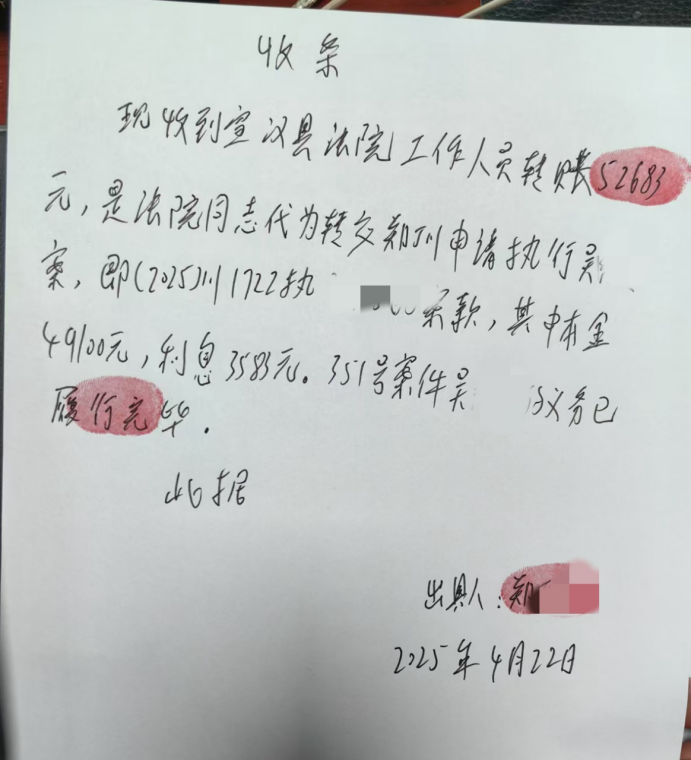 收条
现收到宣汉县法院工作人员转账52683
元，是法院同志代为转交郑川申请执行吴
案，即(2025)川1722执 案款，其中本金
49100元，利息3583元。351号案件吴 义务已
履行完毕．
此据
出具人：郑
2025年4月22日